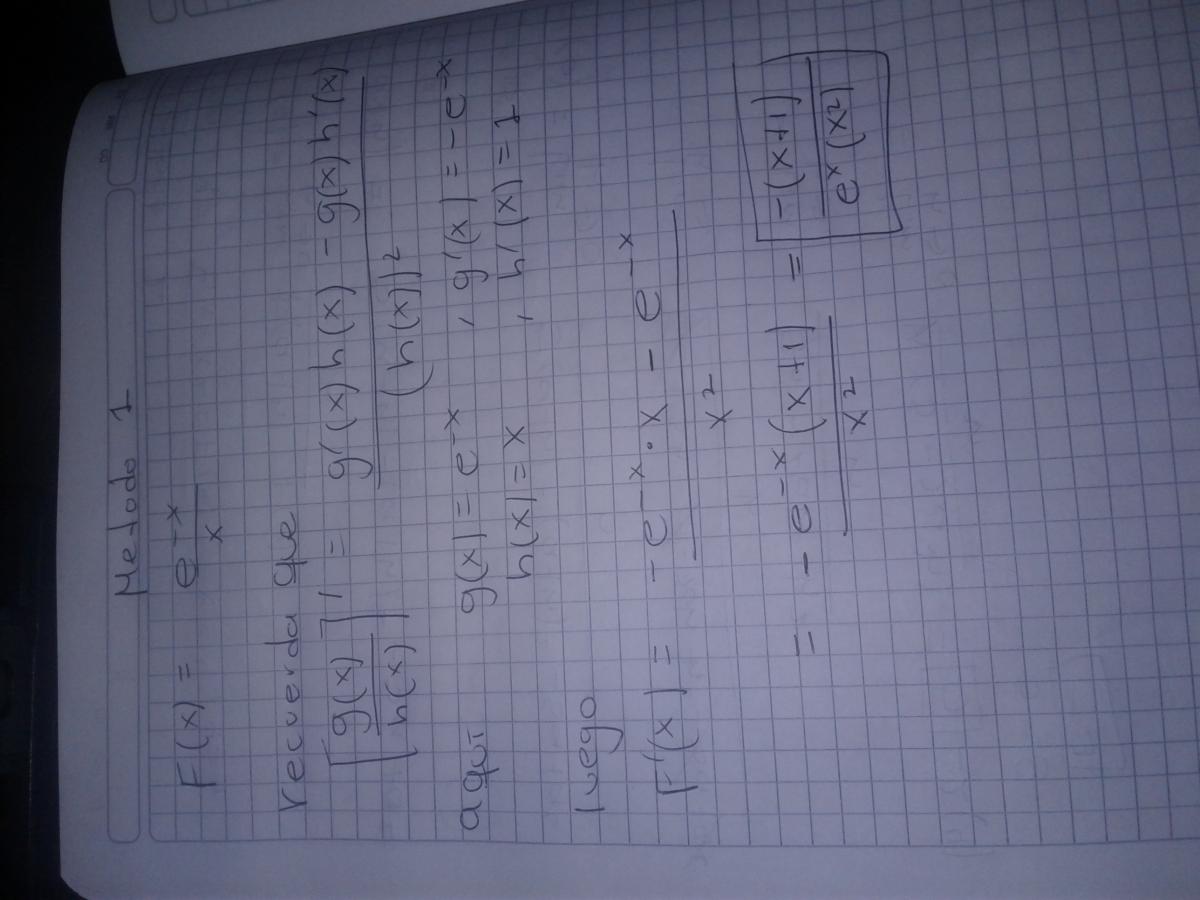 Metodo 1
F(x) = e^-x / x
recuerda que
[g(x) / h(x)]' = g'(x) h(x) - g(x) h'(x) / (h(x))^2
aquí g(x) = e^-x , g'(x) = -e^-x
h(x) = x , h'(x) = 1
luego
F'(x) = -e^-x · x - e^-x / x^2
= -e^-x (x+1) / x^2 = -(x+1) / e^x (x^2)